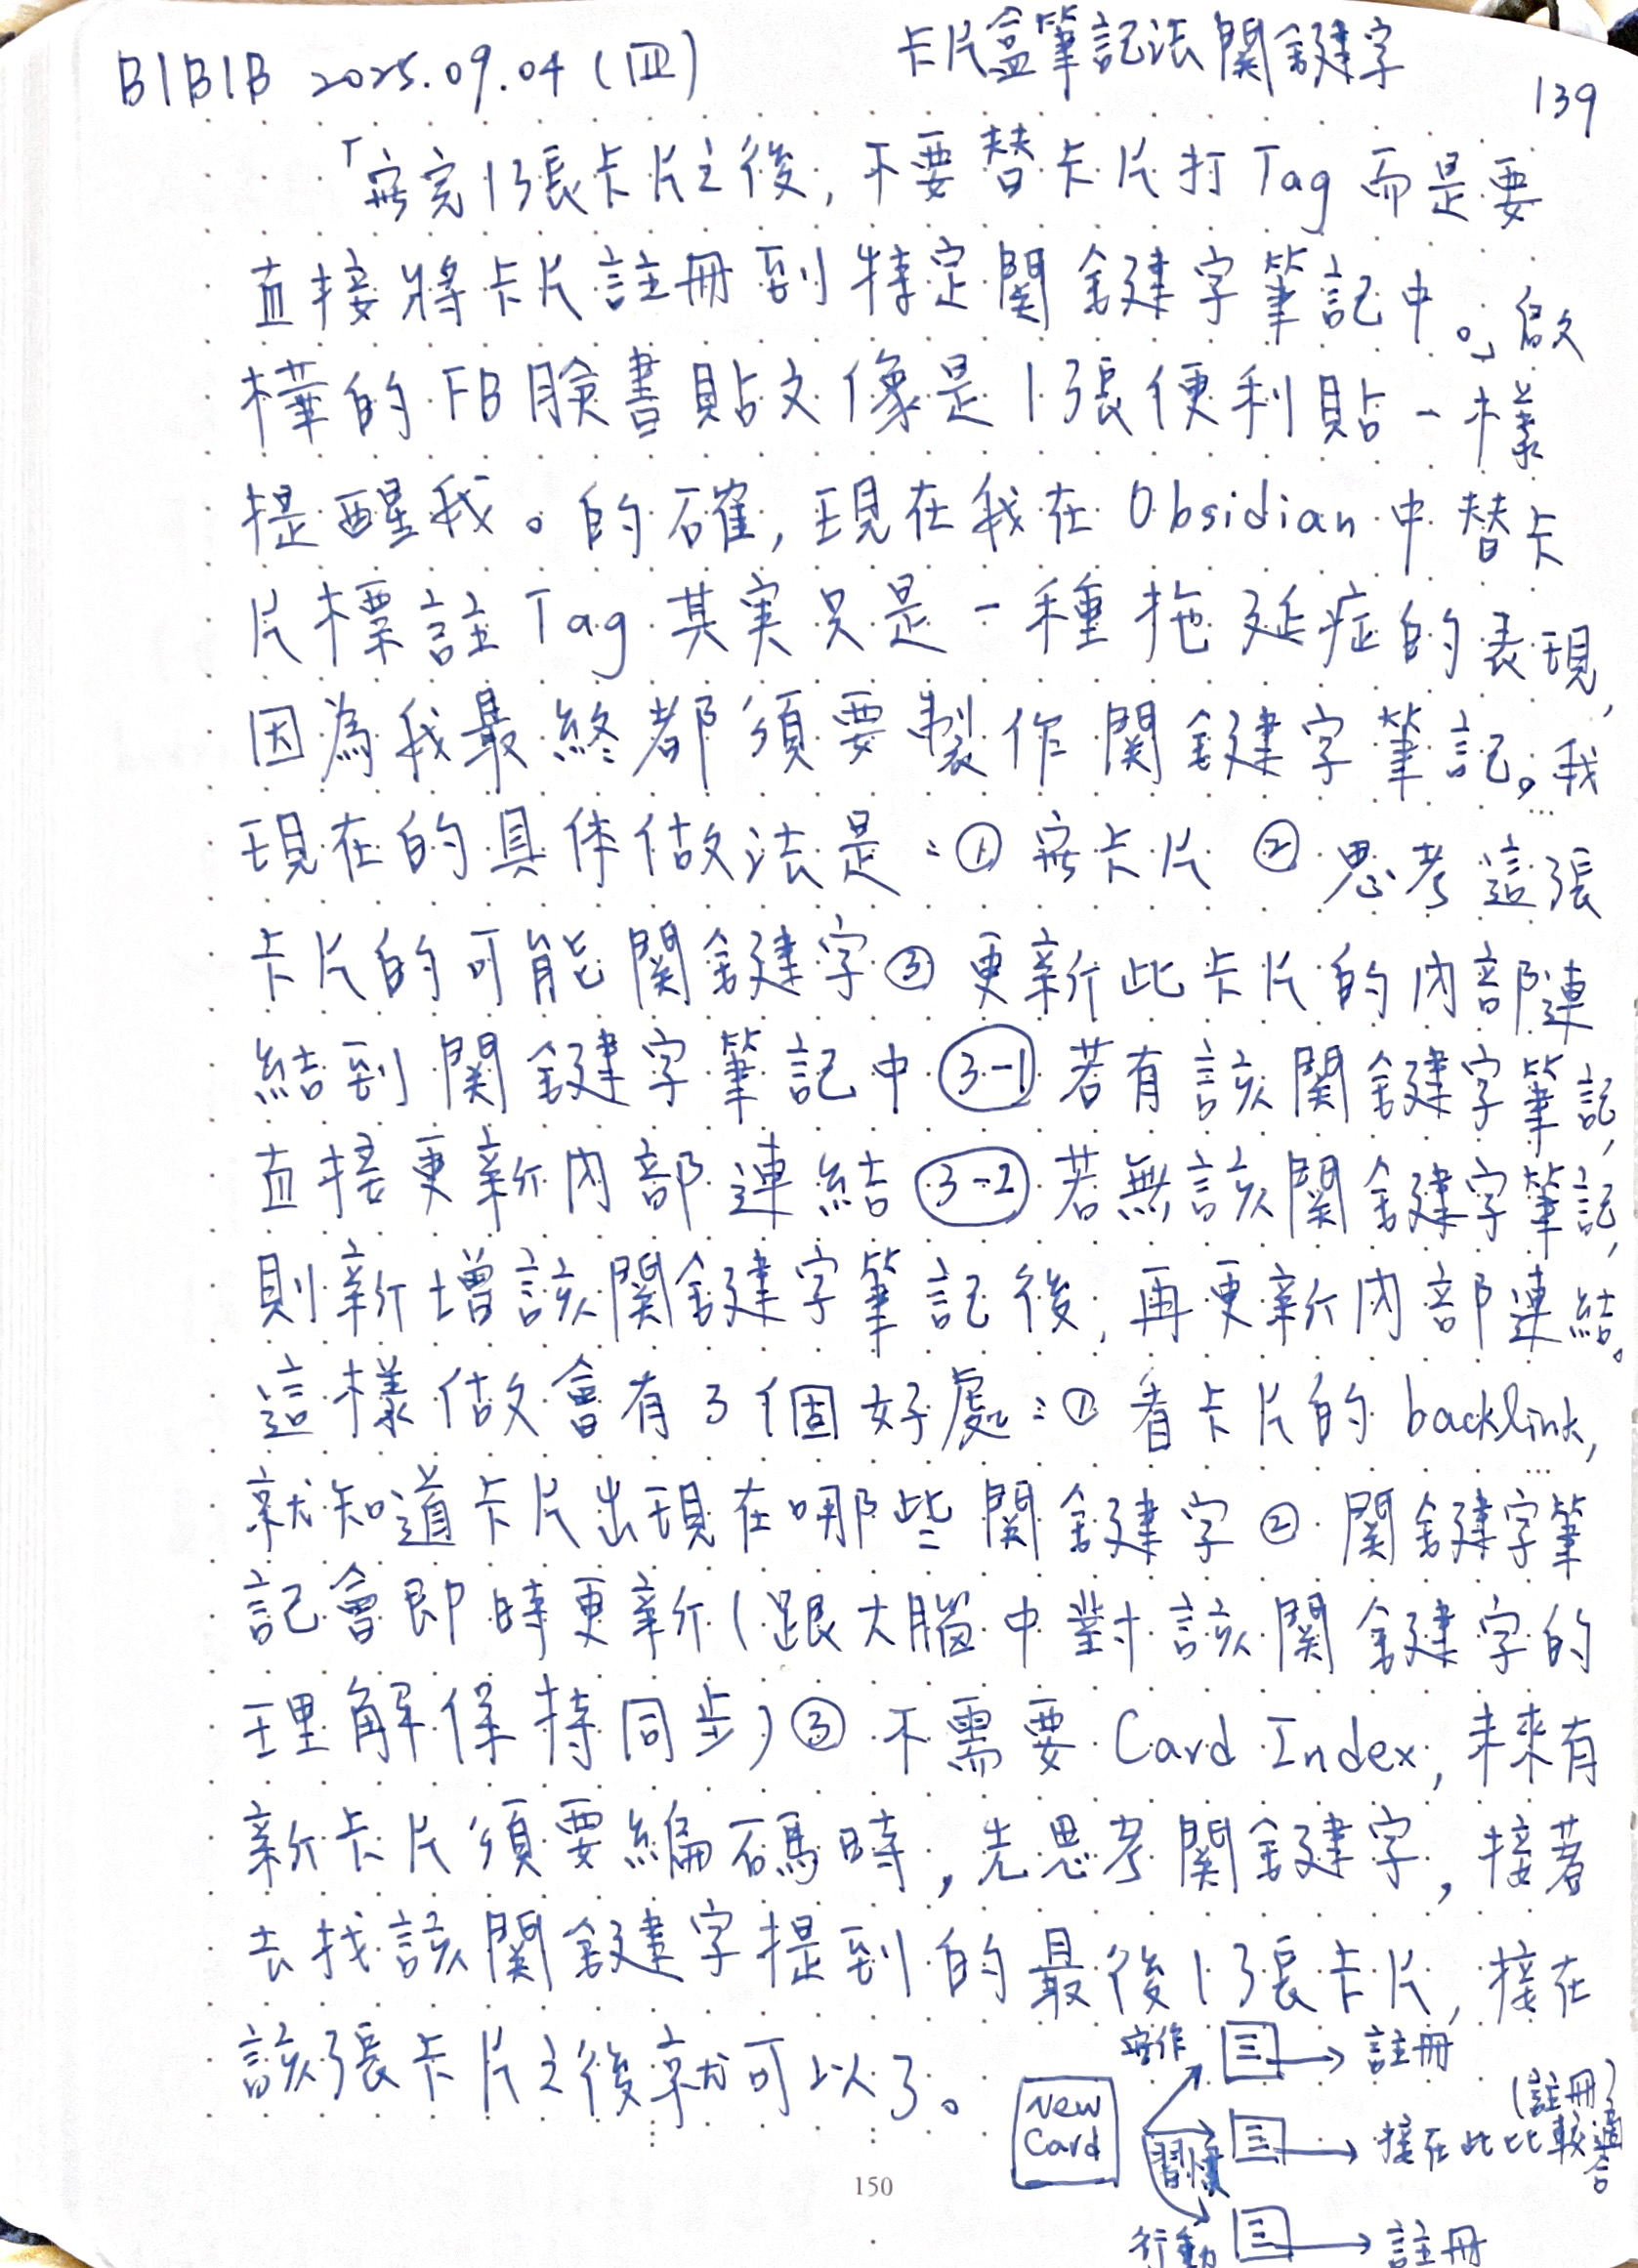 B1B1B 2025.09.04 (四)
卡片盒筆記法關鍵字
139
「寫完1張卡片之後, 不要替卡片打Tag而是要
直接將卡片註冊到特定關鍵字筆記中。」啟
樺的FB臉書貼文像是1張便利貼一樣
提醒我。的確, 現在我在Obsidian中替卡
片標註Tag其実只是一種拖延症的表現,
因為我最終都須要製作關鍵字筆記。我
現在的具体做法是:①寫卡片 ②思考這張
卡片的可能關鍵字③更新此卡片的內部連
結到關鍵字筆記中 3-1 若有該關鍵字筆記,
直接更新內部連結 3-2 若無該關鍵字筆記,
則新增該關鍵字筆記後, 再更新內部連結。
這樣做會有3個好處:①看卡片的backlink,
就知道卡片出現在哪些關鍵字②關鍵字筆
記會即時更新(跟大腦中對該關鍵字的
理解保持同步)③不需要Card Index, 未來有
新卡片須要編碼時, 先思考關鍵字, 接著
去找該關鍵字提到的最後1張卡片, 接在
該張卡片之後就可以了。
寫作
註冊
New
Card
習慣
接在此比較適合
(註冊)
行動
註冊
150